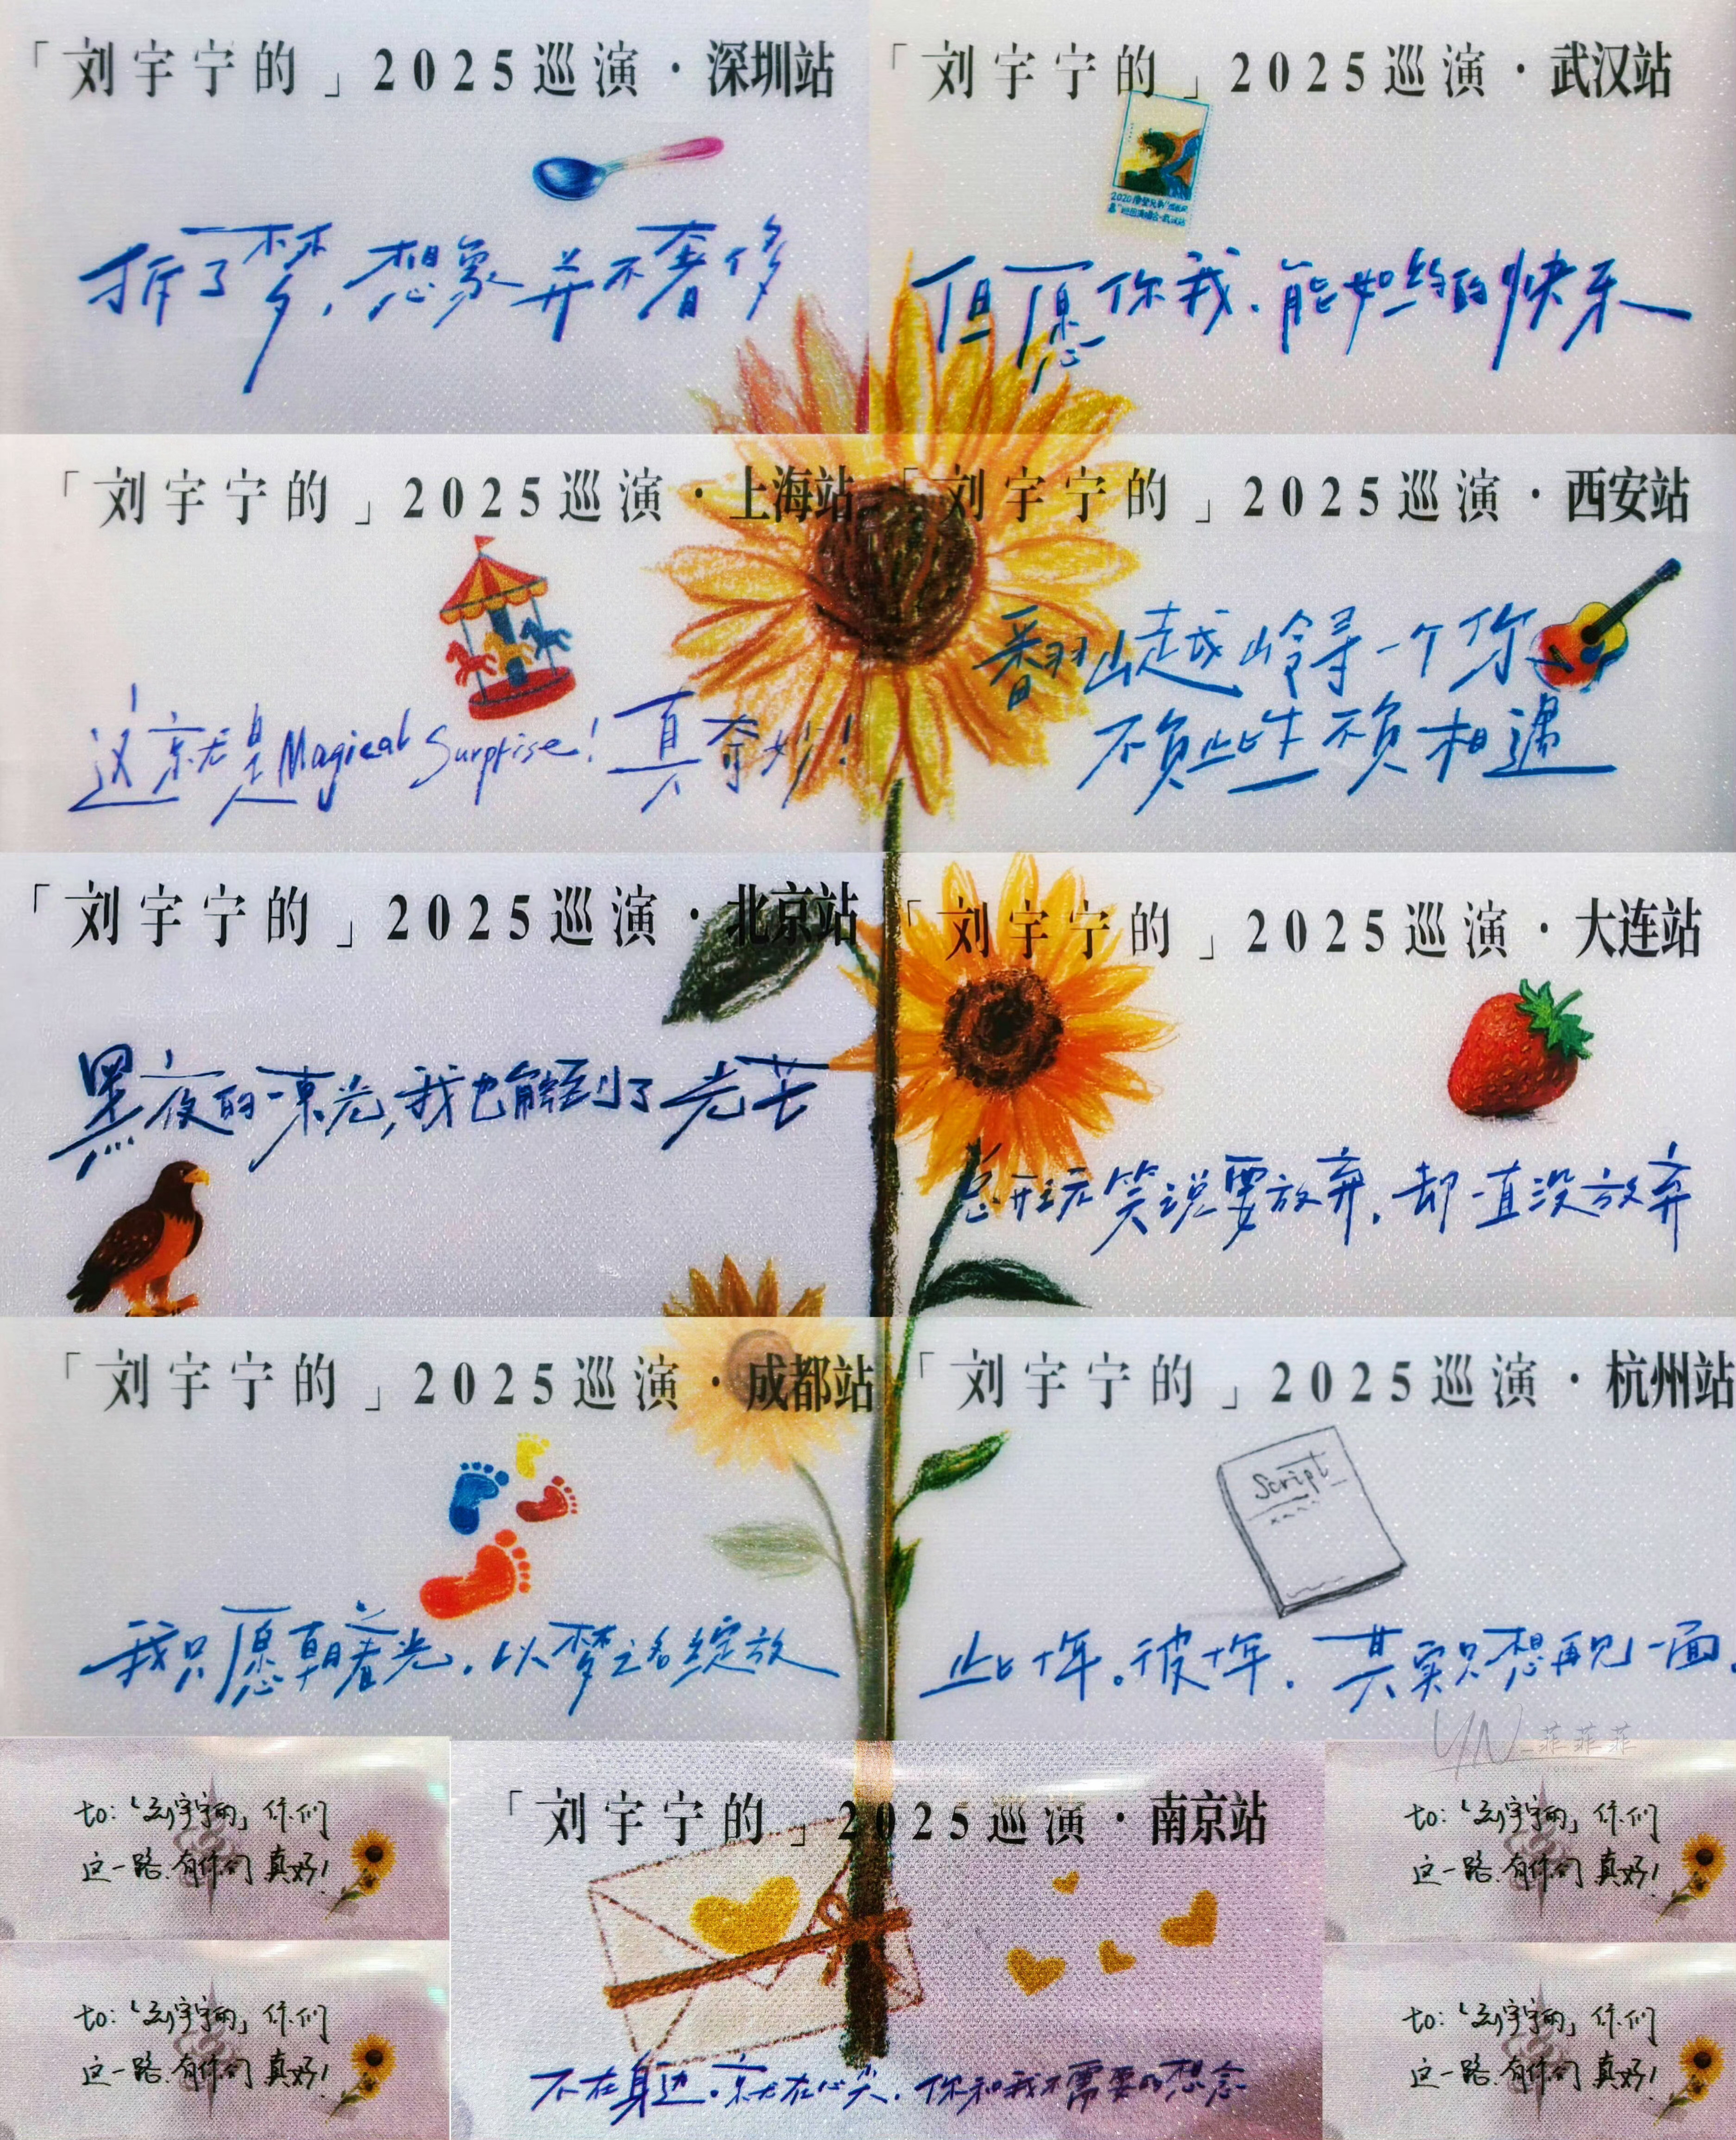 「刘宇宁的」2025巡演·深圳站
拆了梦,想象并不奢侈
「刘宇宁的」2025巡演·武汉站
但愿你我.能如约的快乐
「刘宇宁的」2025巡演·上海站
这就是Magical Surprise!真奇妙!
「刘宇宁的」2025巡演·西安站
翻山越岭寻一个你
不负此生不负相遇
「刘宇宁的」2025巡演·北京站
黑夜的一束光,我也能到了光芒
「刘宇宁的」2025巡演·大连站
总开玩笑说要放弃.却一直没放弃
「刘宇宁的」2025巡演·成都站
我只愿朝着光.以梦之名绽放
「刘宇宁的」2025巡演·杭州站
Script
此十年。彼十年.其实只想再见一面.
YN_菲菲菲
to:「刘宇宁的」你们
这一路.有你们真好!
「刘宇宁的」2025巡演·南京站
不在身边.就在心尖.你和我不需要的想念
to:「刘宇宁的」你们
这一路.有你们真好!
to:「刘宇宁的」你们
这一路.有你们真好!
to:「刘宇宁的」你们
这一路.有你们真好!